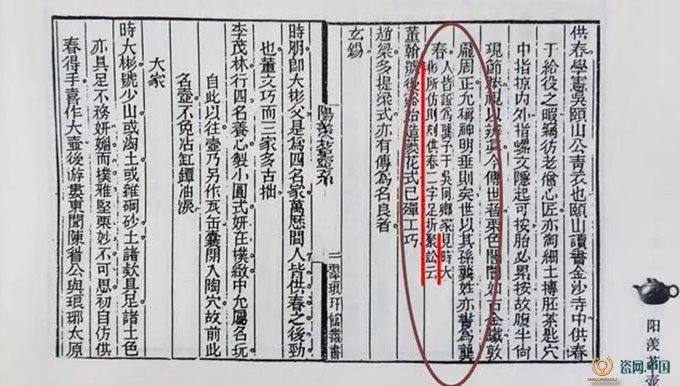 供春學憲吳頤山公青衣也頤山讀書金沙寺中供春
于給役之暇竊彷老僧心匠亦淘細土摶胚茶匙穴
中指掠內外指螺文隱起可按胎必累按故腹半尚
現節腠視以辨真今傳世者栗色闇闇如古金鐵敦
龐周正允稱神明垂則矣世以其孫龔姓亦書為龔
春。人皆證為龔予于吳冏卿家見時大
彬所仿則刻供春二字足折聚訟云
董翰號後谿始造菱花式已殫工巧
趙梁多提梁式亦有傳為名良者
玄錫
陽羨茗壺系
二
翠琅玕館叢書
時朋卽大彬父是為四名家萬厯間人皆供春之後勁
也董文巧而三家多古拙
李茂林行四名養心製小圓式妍在樸緻中允屬名玩
自此以往壺乃另作瓦缶囊閉入陶穴故前此
名壺不免沾缸罈油淚
大家
時大彬號少山或淘土或雜碙砂土諸款具足諸土色
亦具足不務妍媚而樸雅堅栗妙不可思初自仿供
春得手喜作大壺後遊婁東聞陳睂公與琅琊太原
阳羡茗壶
瓷网.中国